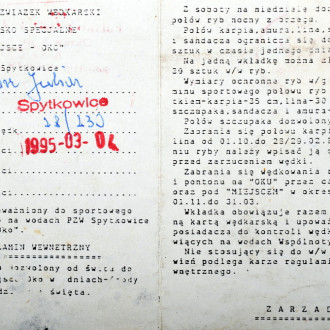 ZWIĄZEK WĘDKARSKI
SKO SPECJALNE
JSCE - OKO"
Spytkowice
Spytkowice
18/133
1995-03-0
ważniony do sportowego
na wodach PZW Spytkowice
Oko"
LAMIN WEWNĘTRZNY
ozwolony od świtu do
Oko w dniach-środy
święta.
Z soboty na niedzielę do
połów ryb nocny z brzegu.
Połów karpia,amura,lina,
i sandacza ogranicza się do
sztuk w czasie jednego dnia
Na jedną wkładkę można
20 sztuk w/w ryb.
Wymiary ochronne ryb w/g
minu sportowego połowu ryb
tkiem-karpia-35 cm,lina-30
szczupaka,sandacza i amura-
Połów szczupaka dozwolony
Zabrania się połowu karpia
lina od 01.10 do 28/29.02.
niu ryby należy wpisać ją
przed zarzuceniem wędki.
Zabrania się wędkowania
i pontonu na "OKU" przez
oraz pod "MIEJSCEM" w okresie
01.11 do 31.03.
Wkładka obowiązuje razem
ną kartą wędkarską i upoważ
posiadacza do kontroli wędku
wiących na wodach Wspólnoty
Nie stosujący się do w/w
wień podlega karze regulami
wnętrznego.
Z A R Z Ą D